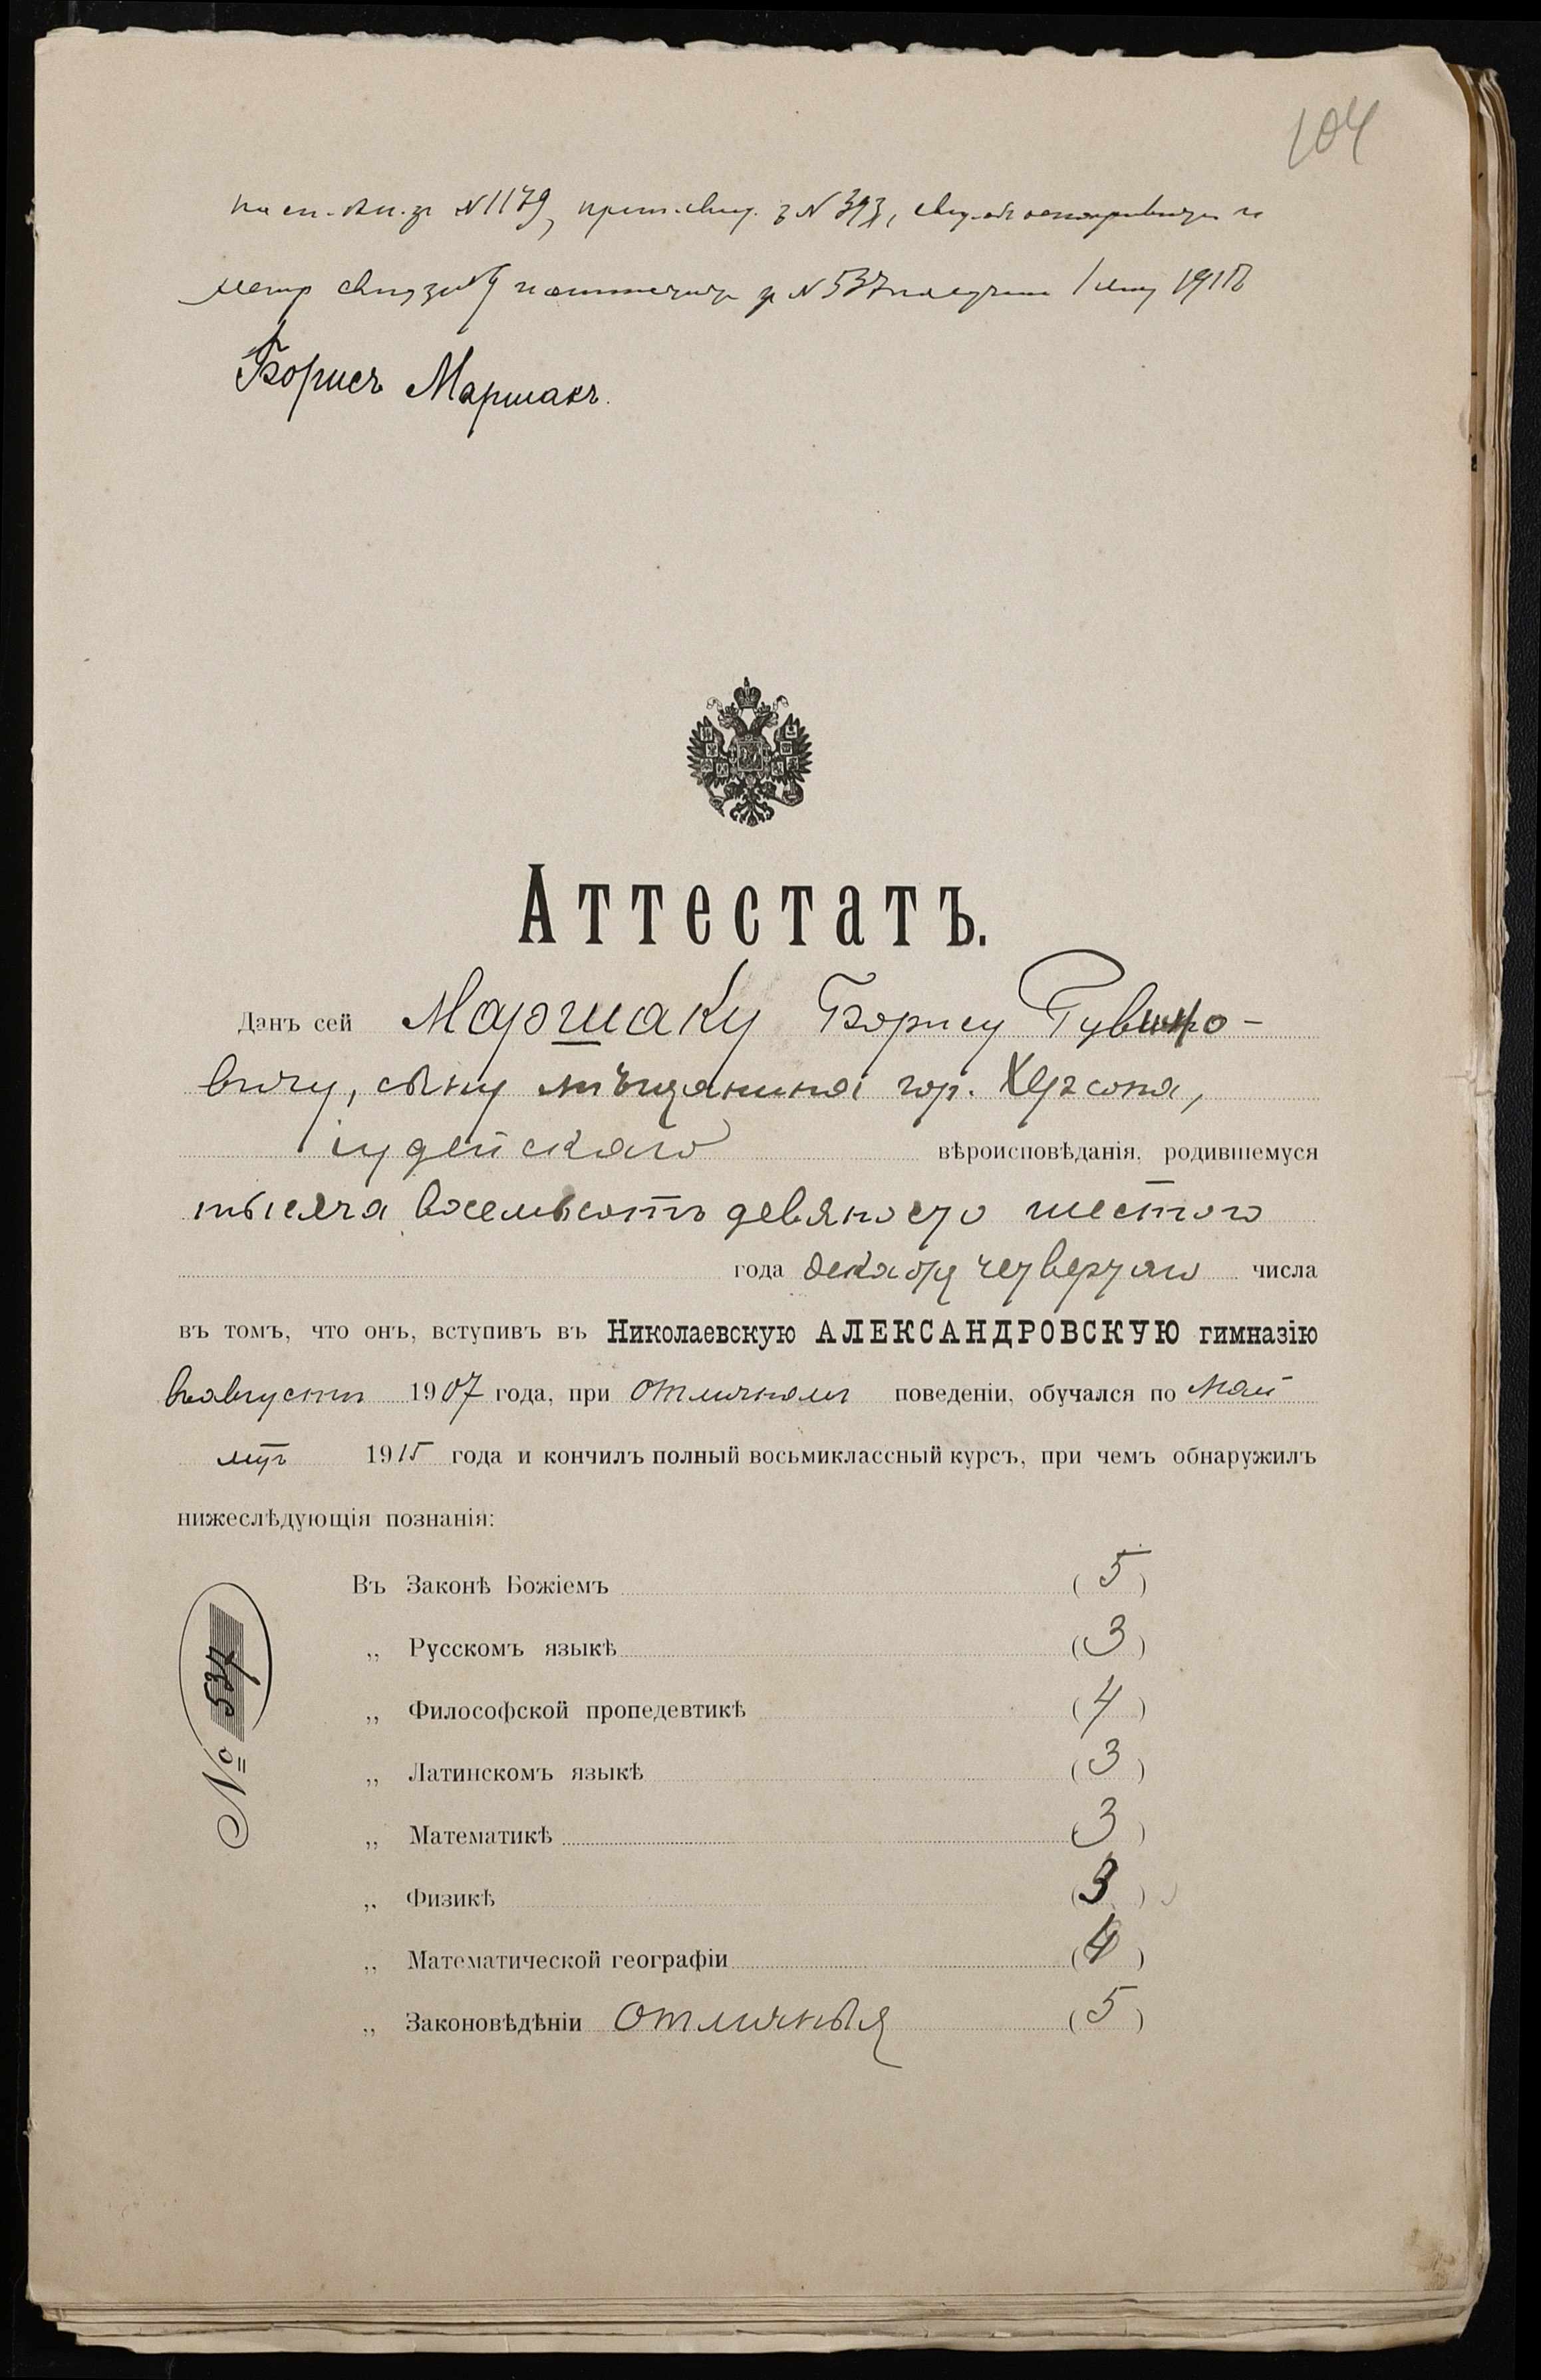 104
№ 1179, № 393, и
№ 537 1915
Борисъ Маршакъ.
Аттестатъ.
Данъ сей Маршаку Борису Рувино-
вичу, сыну мѣщанина гор. Херсона,
іудейскаго вѣроисповѣданія, родившемуся
тысяча восемьсотъ девяносто шестого
года декабря четвертаго числа
въ томъ, что онъ, вступивъ въ Николаевскую АЛЕКСАНДРОВСКУЮ гимназію
въ августѣ 1907 года, при отличномъ поведеніи, обучался по май
мц҃ъ 1915 года и кончилъ полный восьмиклассный курсъ, при чемъ обнаружилъ
нижеслѣдующія познанія:
Въ Законѣ Божіемъ (5)
„ Русскомъ языкѣ (3)
„ Философской пропедевтикѣ (4)
„ Латинскомъ языкѣ (3)
„ Математикѣ (3)
„ Физикѣ (3)
„ Математической географіи (4)
„ Законовѣдѣніи отличныя (5)
№ 537